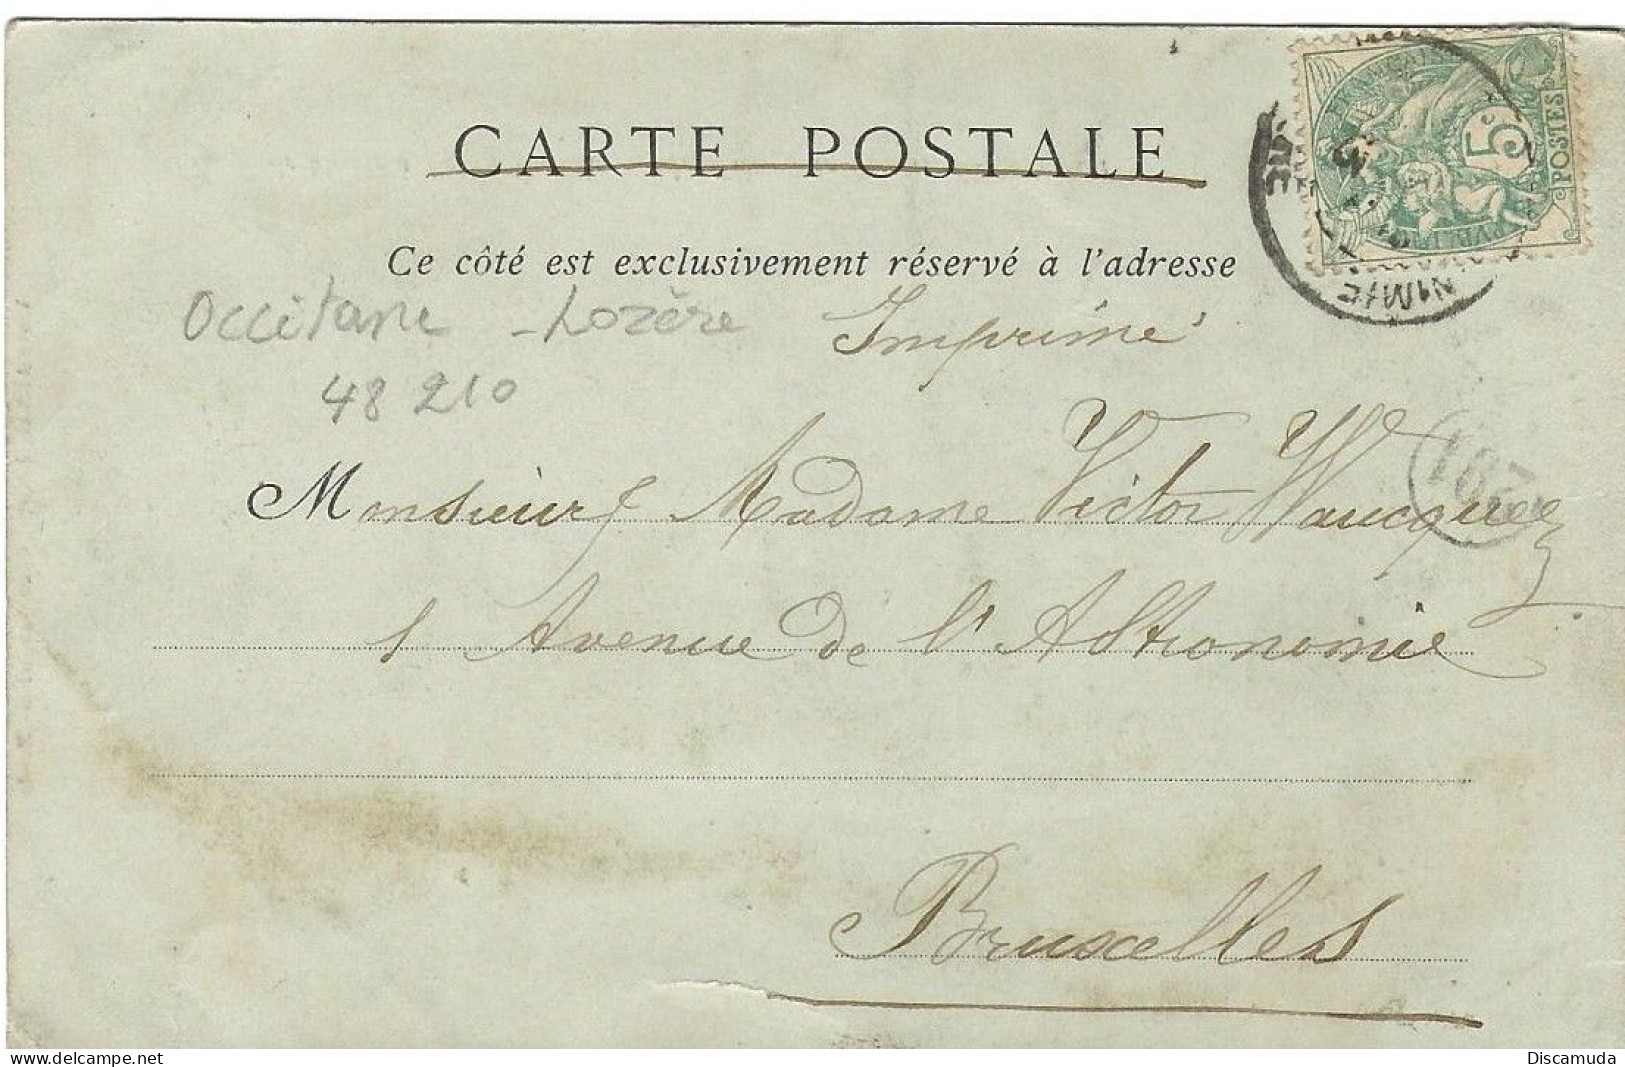 CARTE POSTALE
Ce côté est exclusivement réservé à l'adresse
5c
POSTES
NIMES
Occitanie - Lozère
Imprimé
48 210
Monsieur & Madame Victor Waucquez
1 Avenue de l'Astronomie
Bruxelles
delcampe.net
Discamuda